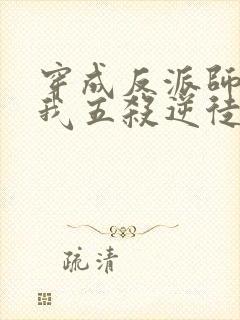 穿成反派師
我五殺逆徒
疏清